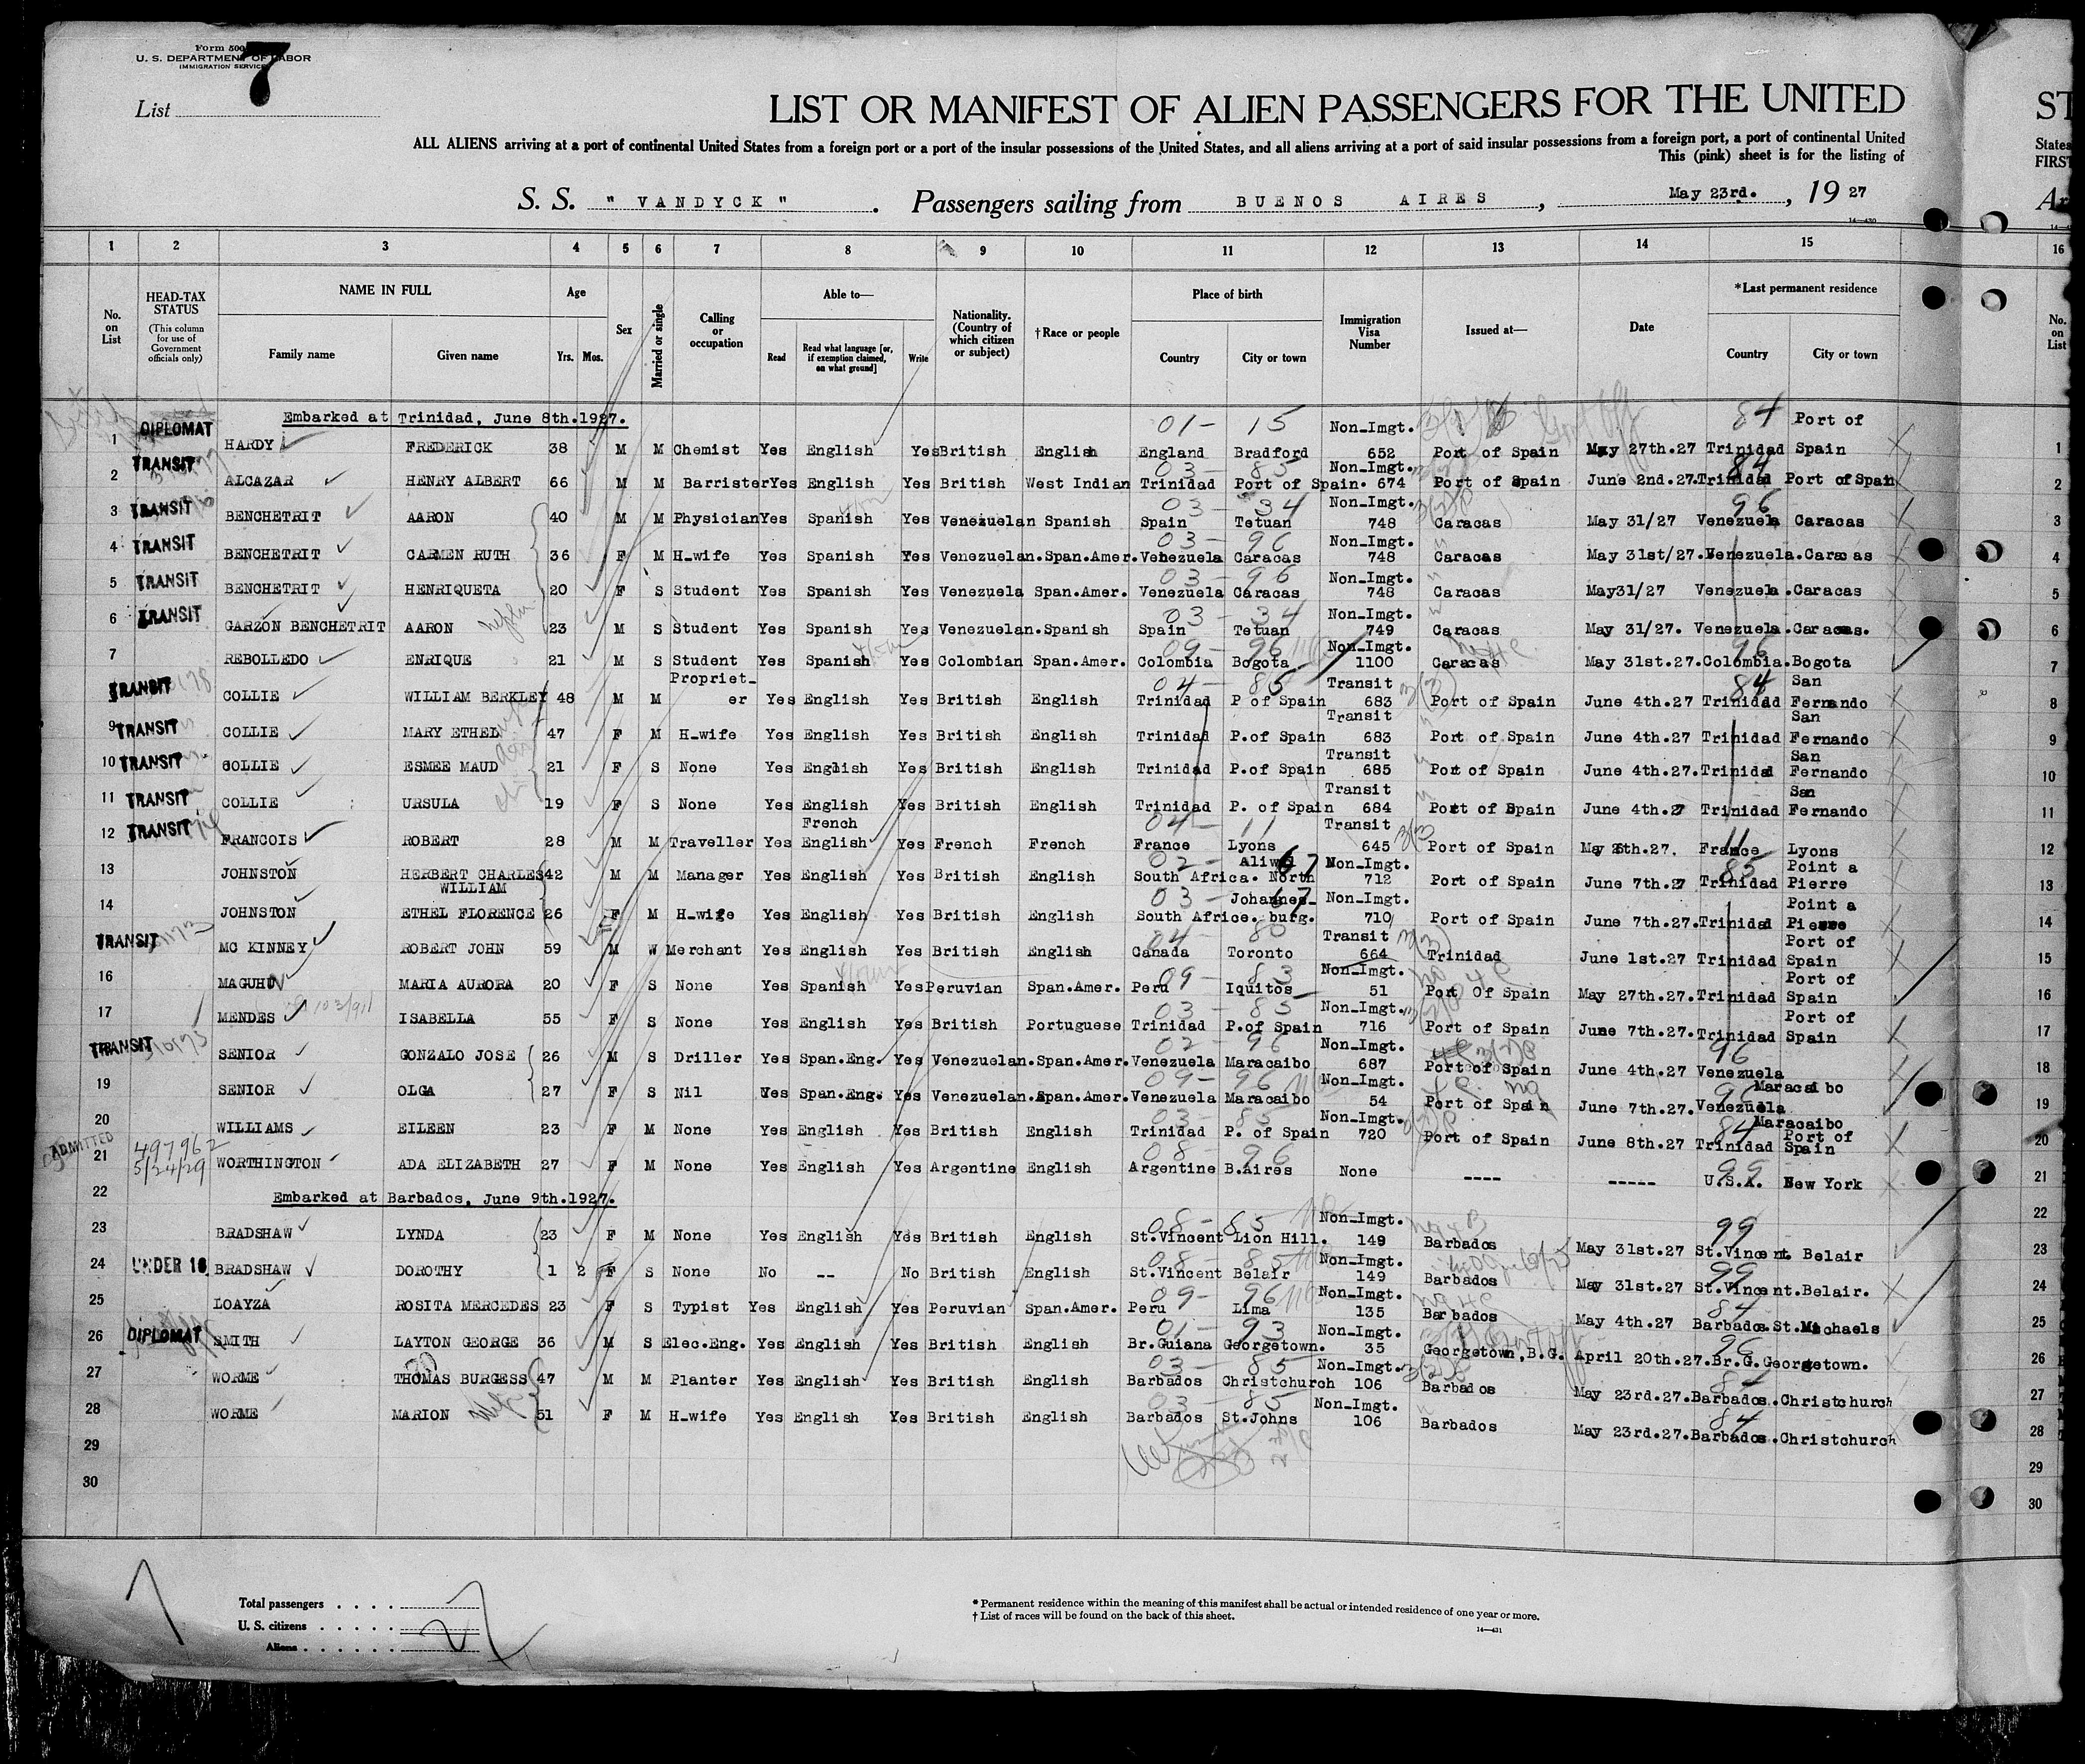 Form 500
U. S. DEPARTMENT OF LABOR
IMMIGRATION SERVICE
7
List
LIST OR MANIFEST OF ALIEN PASSENGERS FOR THE UNITED
ST
ALL ALIENS arriving at a port of continental United States from a foreign port or a port of the insular possessions of the United States, and all aliens arriving at a port of said insular possessions from a foreign port, a port of continental United
States
This (pink) sheet is for the listing of
FIRST
S. S. " VANDYCK " . Passengers sailing from BUENOS AIRES , May 23rd. , 19 27
14—430
1 2 3 4 5 6 7 8 9 10 11 12 13 14 15 16
No. on List
HEAD-TAX STATUS (This column for use of Government officials only)
NAME IN FULL
Family name Given name
Age
Yrs. Mos.
Sex
Married or single
Calling or occupation
Able to—
Read
Read what language [or, if exemption claimed, on what ground]
Write
Nationality. (Country of which citizen or subject)
†Race or people
Place of birth
Country City or town
Immigration Visa Number
Issued at—
Date
*Last permanent residence
Country City or town
No. on List
Embarked at Trinidad, June 8th.1927. 01- 15 84
1 DIPLOMAT HARDY FREDERICK 38 M M Chemist Yes English Yes British English England Bradford Non-Imgt. 652 Port of Spain May 27th.27 Trinidad Port of Spain 1
03- 85 84
2 TRANSIT ALCAZAR HENRY ALBERT 66 M M Barrister Yes English Yes British West Indian Trinidad Port of Spain. Non-Imgt. 674 Port of Spain June 2nd.27. Trinidad Port of Spain 2
03- 34 96
3 TRANSIT BENCHETRIT AARON 40 M M Physician Yes Spanish Yes Venezuelan Spanish Spain Tetuan Non-Imgt. 748 Caracas May 31/27 Venezuela Caracas 3
03- 96
4 TRANSIT BENCHETRIT CARMEN RUTH 36 F M H-wife Yes Spanish Yes Venezuelan. Span.Amer. Venezuela Caracas Non-Imgt. 748 Caracas May 31st/27. Venezuela. Caracas 4
03- 96
5 TRANSIT BENCHETRIT HENRIQUETA 20 F S Student Yes Spanish Yes Venezuela Span.Amer. Venezuela Caracas Non-Imgt. 748 Caracas May31/27 Venezuela. Caracas 5
03- 34
6 TRANSIT GARZON BENCHETRIT AARON 23 M S Student Yes Spanish Yes Venezuelan. Spanish Spain Tetuan Non-Imgt. 749 Caracas May 31/27. Venezuela. Caracas. 6
09- 96 96
7 REBOLLEDO ENRIQUE 21 M S Student Yes Spanish Yes Colombian Span.Amer. Colombia Bogota Non-Imgt. 1100 Caracas May 31st.27. Colombia. Bogota 7
04- 85 84
TRANSIT COLLIE WILLIAM BERKLEY 48 M M Propriet-er Yes English Yes British English Trinidad P of Spain Transit 683 Port of Spain June 4th.27 Trinidad San Fernando 8
9 TRANSIT COLLIE MARY ETHEL 47 F M H-wife Yes English Yes British English Trinidad P.of Spain Transit 683 Port of Spain June 4th.27 Trinidad San Fernando 9
10 TRANSIT COLLIE ESMEE MAUD 21 F S None Yes English Yes British English Trinidad P.of Spain Transit 685 Port of Spain June 4th.27. Trinidad San Fernando 10
11 TRANSIT COLLIE URSULA 19 F S None Yes English Yes British English Trinidad P. of Spain Transit 684 Port of Spain June 4th.27 Trinidad San Fernando 11
04- 11 11
12 TRANSIT FRANCOIS ROBERT 28 M M Traveller Yes French English Yes French French France Lyons Transit 645 Port of Spain May 26th.27. France Lyons 12
02- 67 85
13 JOHNSTON HERBERT CHARLES WILLIAM 42 M M Manager Yes English Yes British English South Africa. Aliwal North Non-Imgt. 712 Port of Spain June 7th.27 Trinidad Point a Pierre 13
03- 67
14 JOHNSTON ETHEL FLORENCE 26 F M H-wife Yes English Yes British English South Africe. Johannes-burg. Non-Imgt. 710 Port of Spain June 7th.27. Trinidad Point a Pierre 14
04- 80
TRANSIT MC KINNEY ROBERT JOHN 59 M W Merchant Yes English Yes British English Canada Toronto Transit 664 Trinidad June 1st.27 Trinidad Port of Spain 15
09- 83
16 MAGUHN MARIA AURORA 20 F S None Yes Spanish Yes Peruvian Span.Amer. Peru Iquitos Non-Imgt. 51 Port Of Spain May 27th.27. Trinidad Port of Spain 16
03- 85
17 MENDES ISABELLA 55 F S None Yes English Yes British Portuguese Trinidad P.of Spain Non-Imgt. 716 Port of Spain June 7th.27. Trinidad Port of Spain 17
02- 96 96
TRANSIT SENIOR GONZALO JOSE 26 M S Driller Yes Span.Eng. Yes Venezuelan. Span.Amer. Venezuela Maracaibo Non-Imgt. 687 Port of Spain June 4th.27 Venezuela Maracaibo 18
09- 96 96
19 SENIOR OLGA 27 F S Nil Yes Span.Eng. Yes Venezuelan. Span.Amer. Venezuela Maracaibo Non-Imgt. 54 Port of Spain June 7th.27. Venezuela Maracaibo 19
03- 85 84
20 WILLIAMS EILEEN 23 F M None Yes English Yes British English Trinidad P. of Spain Non-Imgt. 720 Port of Spain June 8th.27 Trinidad Port of Spain 20
08- 96 99
ADMITTED 497962 5/24/29
21 WORTHINGTON ADA ELIZABETH 27 F M None Yes English Yes Argentine English Argentine B.Aires None ---- ----- U.S.A. New York 21
22 Embarked at Barbados, June 9th.1927. 22
08- 85 99
23 BRADSHAW LYNDA 23 F M None Yes English Yes British English St.Vincent Lion Hill. Non-Imgt. 149 Barbados May 31st.27 St.Vincent. Belair 23
08- 85 99
24 UNDER 16 BRADSHAW DOROTHY 1 2 F S None No -- No British English St.Vincent Belair Non-Imgt. 149 Barbados May 31st.27 St.Vincent. Belair. 24
09- 96 84
25 LOAYZA ROSITA MERCEDES 23 F S Typist Yes English Yes Peruvian Span.Amer. Peru Lima Non-Imgt. 135 Barbados May 4th.27 Barbados. St.Michaels 25
01- 93 96
26 DIPLOMAT SMITH LAYTON GEORGE 36 M S Elec.Eng. Yes English Yes British English Br.Guiana Georgetown. Non-Imgt. 35 Georgetown,B.G. April 20th.27. Br.G. Georgetown. 26
03- 85 84
27 WORME THOMAS BURGESS 47 M M Planter Yes English Yes British English Barbados Christchurch Non-Imgt. 106 Barbados May 23rd.27. Barbados. Christchurch 27
03- 85 84
28 WORME MARION 51 F M H-wife Yes English Yes British English Barbados St.Johns Non-Imgt. 106 Barbados May 23rd.27. Barbados. Christchurch 28
29 29
30 30
Total passengers . . . .
U. S. citizens . . . . .
Aliens . . . . . .
27
* Permanent residence within the meaning of this manifest shall be actual or intended residence of one year or more.
† List of races will be found on the back of this sheet.
14—431